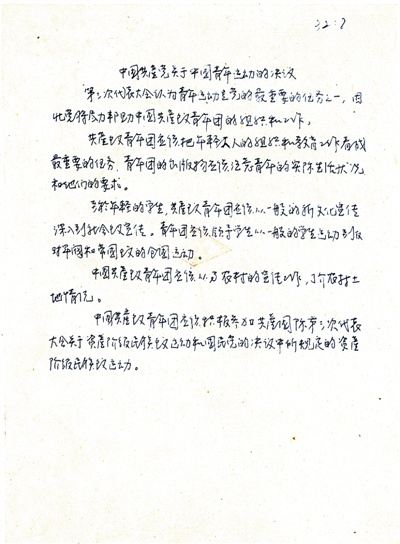 中国共产党关于中国青年运动的决议
第三次代表大会认为青年运动是党的最重要的任务之一，因
此党将尽力帮助中国共产主义青年团的组织和工作。
共产主义青年团应该把年轻工人的组织和教育工作看成
最重要的任务，青年团的出版物应该注意青年的实际生活状况
和他们的要求。
年轻的学生，共产主义青年团应该从一般的新文化宣传
深入到社会主义宣传。青年团应该领导学生从一般的学生运动到反
对军阀和帝国主义的合国运动。
中国共产主义青年团应该从事农村的宣传工作，了解农村土
地情况。
中国共产主义青年团应该积极参加共产国际第三次代表
大会关于资产阶级民族主义运动和国民党的决议中所规定的资产
阶级民族主义运动。